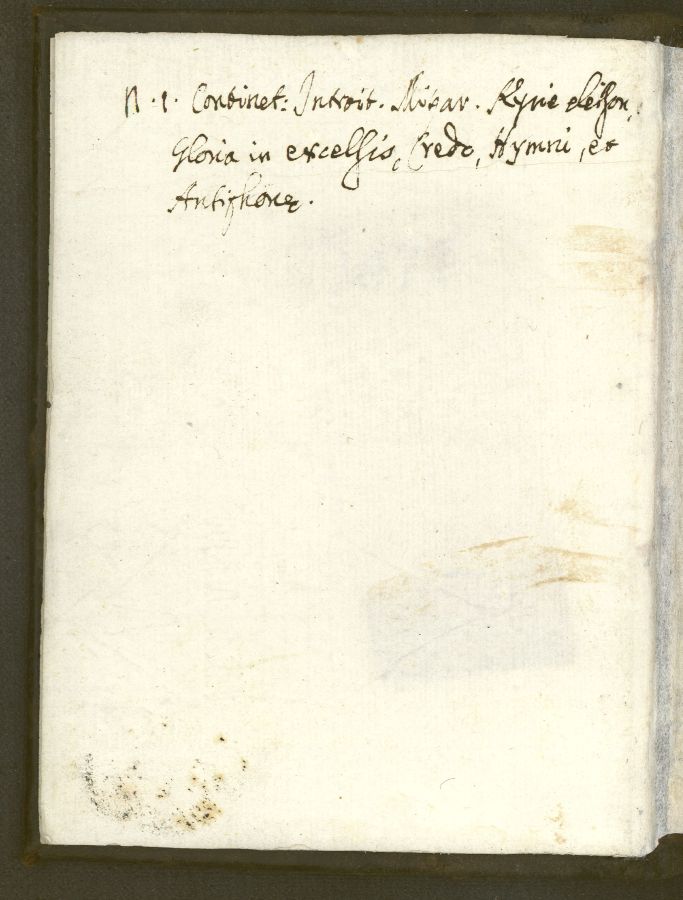 N. 1. Continet: Introit. Missar. Kyrie eleison,
Gloria in excelsis, Credo, Hymni, et
Antiphonę.